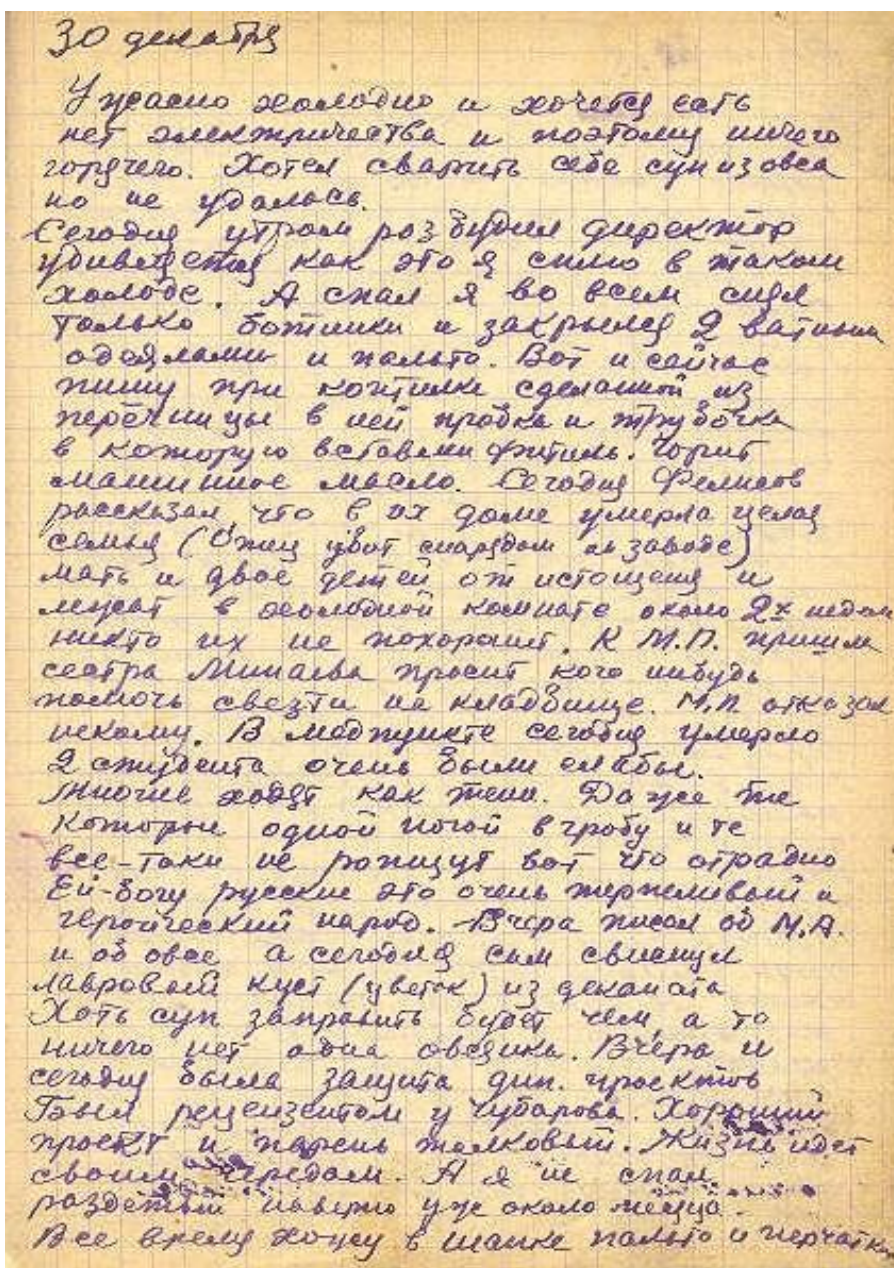 30 декабря
Ужасно холодно и хочется есть
нет электричества и поэтому ничего
горячего. Хотел сварить себе суп из овса
но не удалось.
Сегодня утром разбудил директор
удивляется как это я сплю в таком
холоде. А спал я во всем снял
только ботинки и закрылся 2 ватным
одеялами и пальто. Вот и сейчас
пишу при коптилке сделанной из
перечницы в ней пробка и трубочка
в которую вставлен фитиль. Горит
машинное масло. Сегодня
рассказал что в их доме умерла целая
семья (Отец убит снарядом на заводе)
мать и двое детей от истощения и
лежат в холодной комнате около 2х недель
никто их не похоронит. К М.П. пришла
сестра Минаева просит кого нибудь
помочь свезти на кладбище. М.П. отказал
некому. В медпункте сегодня умерло
2 студента очень были слабы.
Многие ходят как тени. Даже те
которые одной ногой в гробу и те
все-таки не ропщут вот что отрадно
Ей-богу русские это очень терпеливый и
героический народ. Вчера писал об М.А.
и об овсе а сегодня сам свиснул
лавровый куст (цветок) из деканата
Хоть суп заправить будет чем, а то
ничего нет одна овсянка. Вчера и
сегодня была защита дип. проектов
Был рецензентом у Чубарова. Хороший
проект и парень толковый. Жизнь идет
своим чередом. А я не спал
раздетый наверно уже около месяца.
Все время хожу в шапке пальто и перчатка